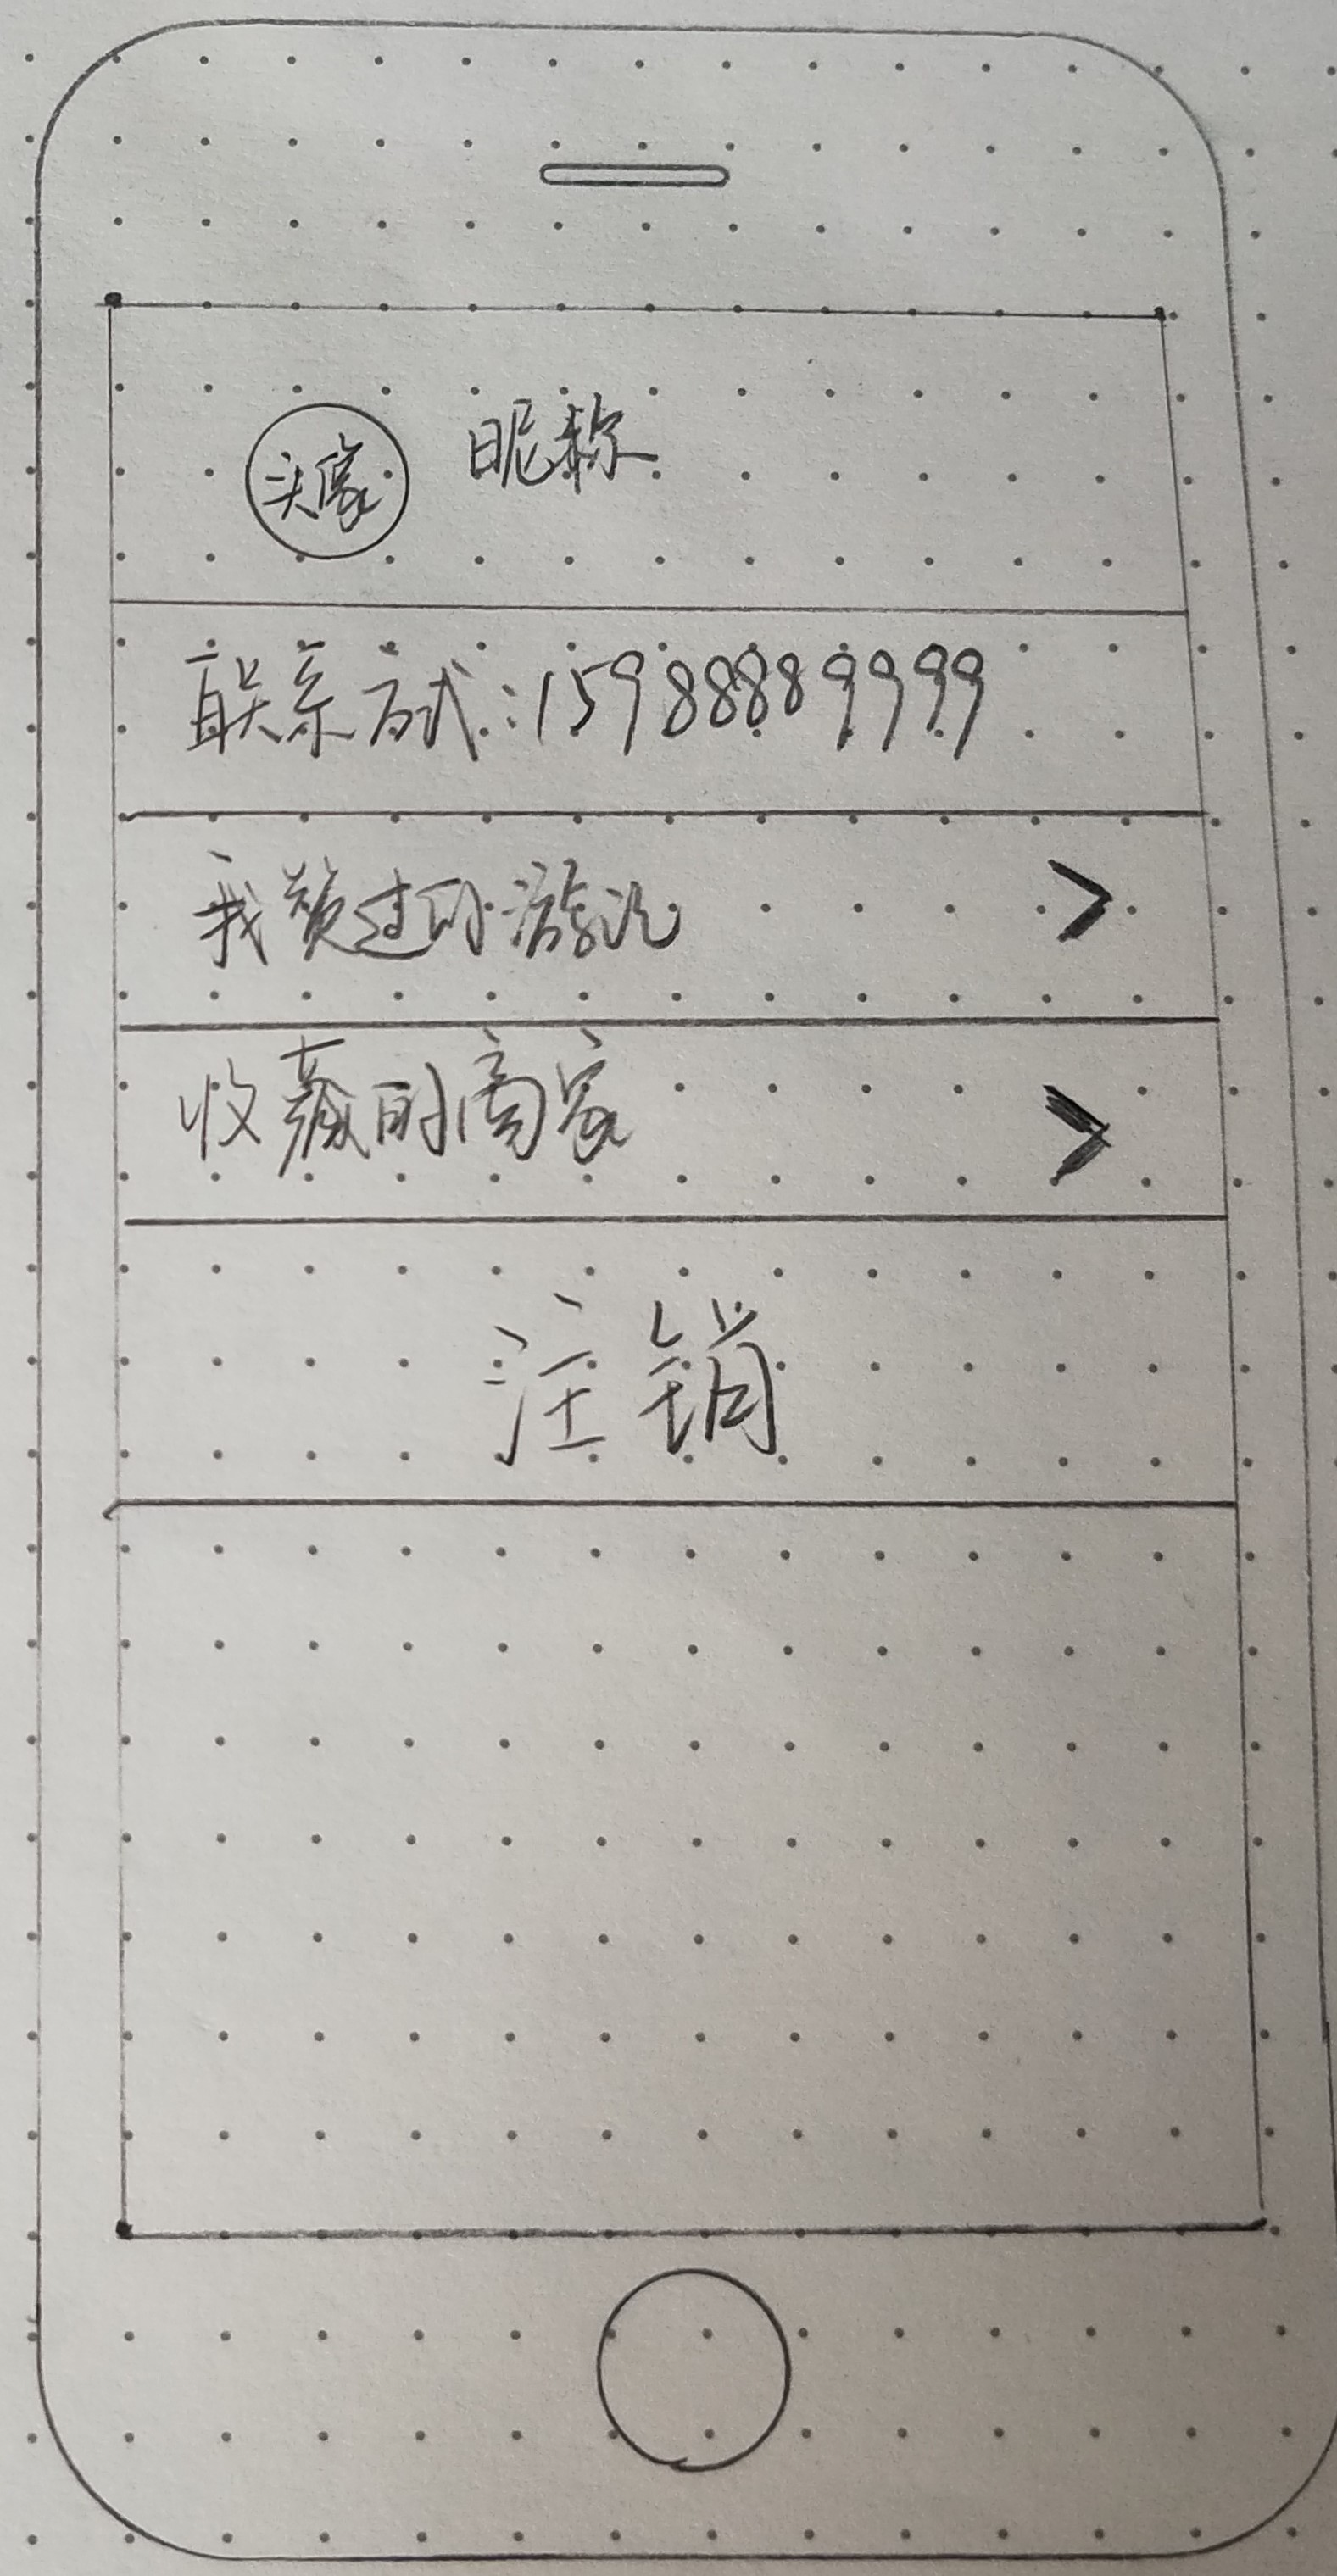 头像 昵称
联系方式:15988889999
我赞过的游记
收藏的商家
注销